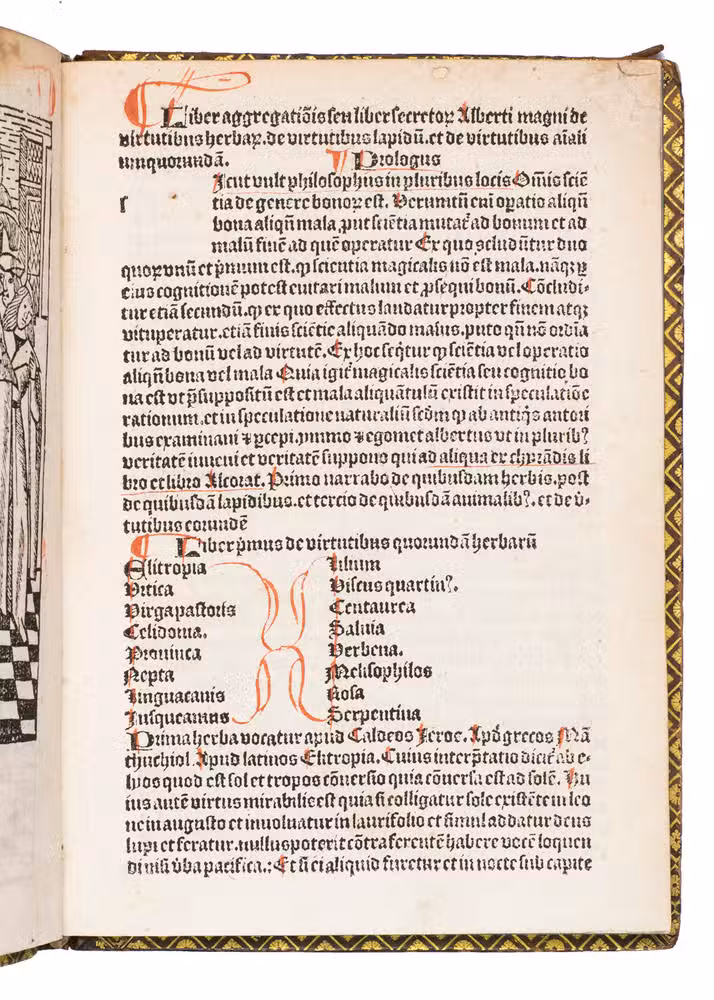 Liber aggregatiōis seu liber secretoꝝ Alberti magni de
virtutibus herbaꝝ. de virtutibus lapidū. et de virtutibus aīali
um quorundā. Prologus
Icut vult philosophus in pluribus locis Om̄is sciē
ſ tia de genere bonoꝝ est. Verumtū eni oꝑatio aliqn̄
bona aliqn̄ mala, put sciētia mutat̃ ad bonum et ad
malū finē ad quē operatur Ex quo ꝯcludūtur duo
quoꝝ vnū et pͥmum est. ꝙ scientia magicalis nō est mala. nāqꝫ ꝑ
eius cognitionē potest euitari malum et ꝓsequi bonū. Cōcludi-
tur etiā secundū. ꝙ ex quo effectus laudatur propter finem atqꝫ
vituperatur. etiā finis sciētie aliquādo malus. puto qn̄ nō ordīa
tur ad bonū vel ad virtutē. Ex hoc seq̃tur ꝙ sciētia vel operatio
aliqn̄ bona vel mala Quia igit̃ magicalis sciētia seu cognitio bo
na est vt p̄suppositū est et mala aliquātulū existit in speculatiōe
rationum. et in speculatione naturaliū scd̄m ꝙ ab antiq̄s autori
bus examinaui ⁊ ꝑcepi. ymmo ⁊ egomet albertus vt in pluribꝰ
veritatē inueni et veritatē suppono qui ad aliqua ex chyrādis li
bro et libro Alcorat. Primo narrabo de quibusdam herbis. post
de quibusdā lapidibus. et tercio de quibusdā animalibꝰ. et de v̄-
tutibus eorundē
Liber pͥmus de virtutibus quorundā herbarū
Elitropia Lilium
Vrtica Viscus quartinꝰ.
Virga pastoris Centaurea
Celidonia. Saluia
Prouinca Verbena.
Nepta Melisophilos
Linguacanis Rosa
Iusqueamus Serpentina
Prima herba vocatur apud Caldeos Ieroc. Apd̄ grecos Mā
thuchiol. Apud latinos Elitropia. Cuius interp̄tatio dicit̃ ab e-
lyos quod est sol et tropos cōuersio quia cōuersa est ad solē. Hu
ius autē virtus mirabilis est quia si colligatur sole existēte in leo
ne in augusto et inuoluatur in laurifolio et simul addatur dens
lupi et feratur. nullus poterit cōtra ferentē habere vocē loquen
di nisi v̄ba pacifica.: Et si ei aliquid furetur et in nocte sub capite